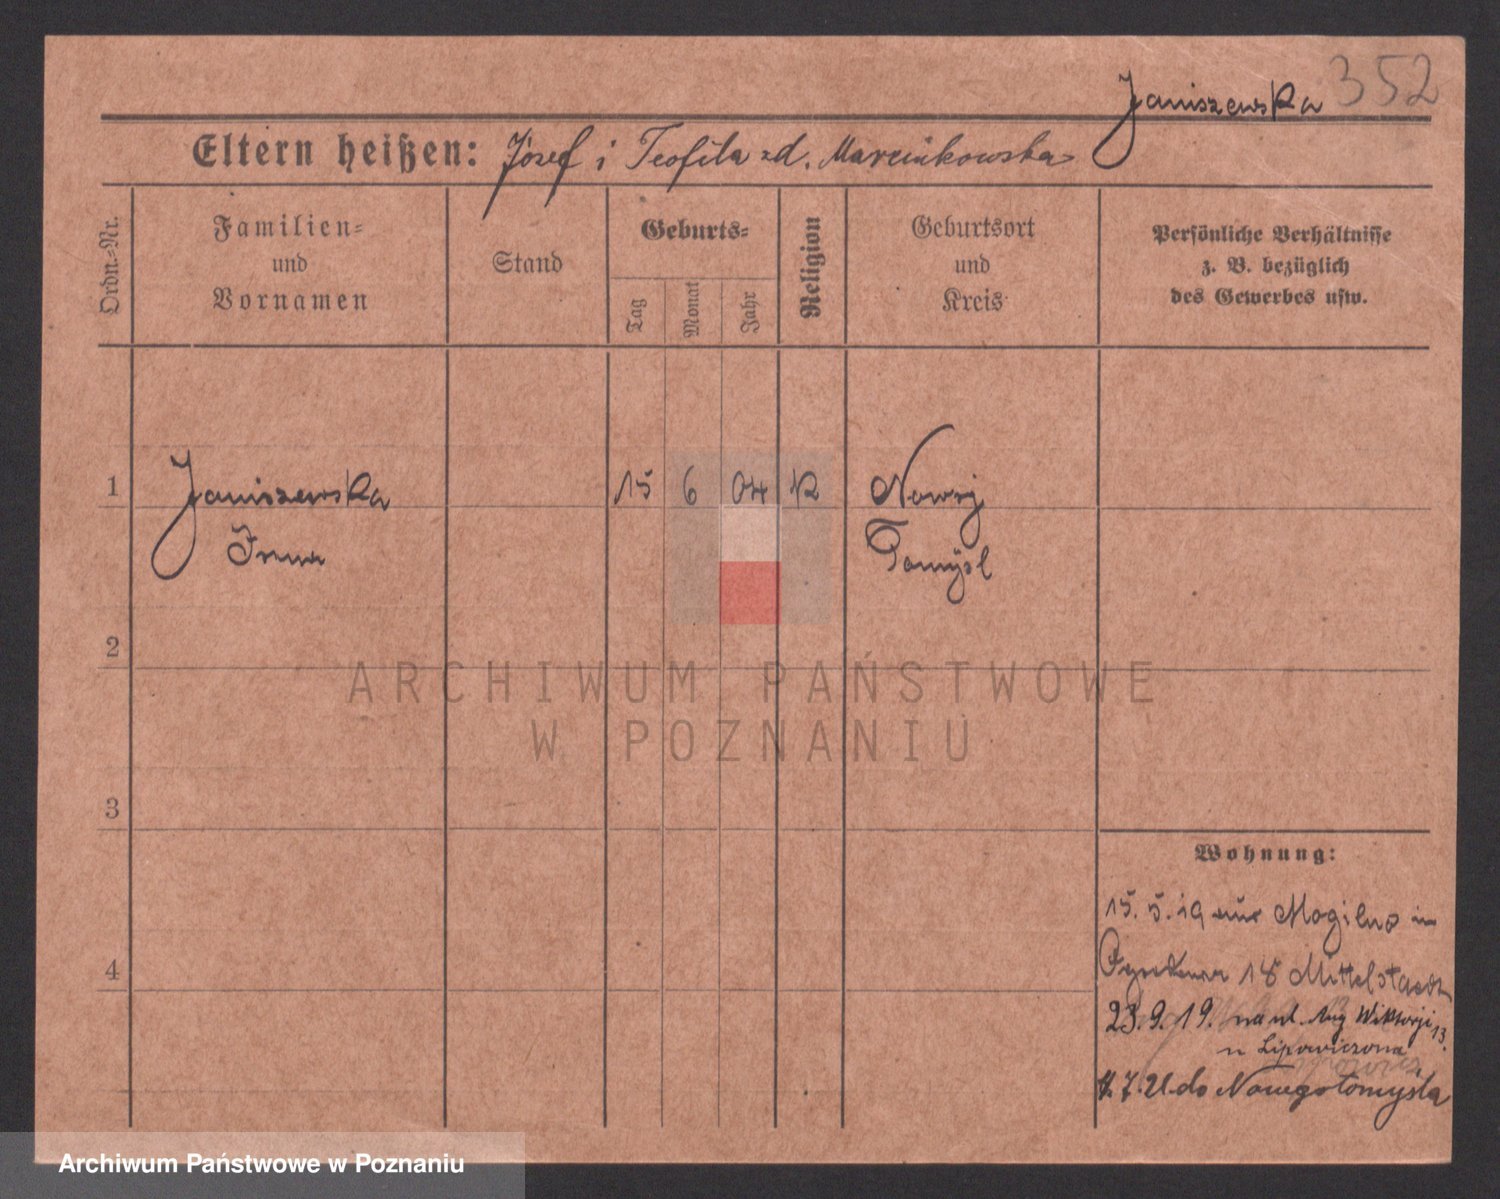 Janiszewska 352
Eltern heißen: Józef i Teofila zd. Marcinkowska
Ordn.-Nr.
Familien-
und
Vornamen
Stand
Geburts-
Tag
Monat
Jahr
Religion
Geburtsort
und
Kreis
Persönliche Verhältnisse
z. B. bezüglich
des Gewerbes usw.
1 Janiszewska 15 6 04 K Nowy
Irena Tomÿsl
2
ARCHIWUM PAŃSTWOWE
W POZNANIU
3
Wohnung:
15. 5. 19 aus Mogilno in
18 Mittelstaedt
4
23. 9. 19. na ul. Aug Wiktorji 13.
u Lipowiczona
7. 21 do Nowegotomyśla
Archiwum Państwowe w Poznaniu